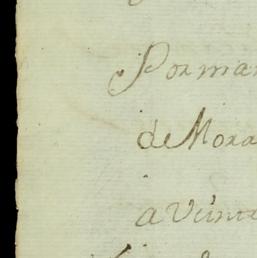 Por man
de Mora
a Veint